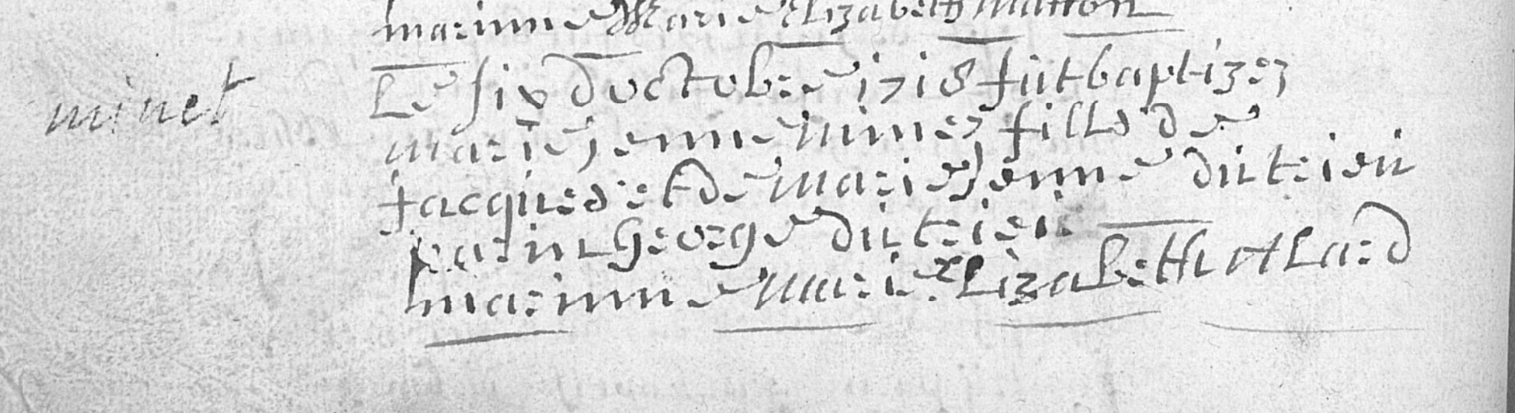 marinne Marie Elizabeth Matton
minet
Le six d'octobre 1718 fut baptizez
marie jenne minez fille de
jacques et de marie jenne dutrieu
parin George dutrieu
marinne marie Elizabeth allard